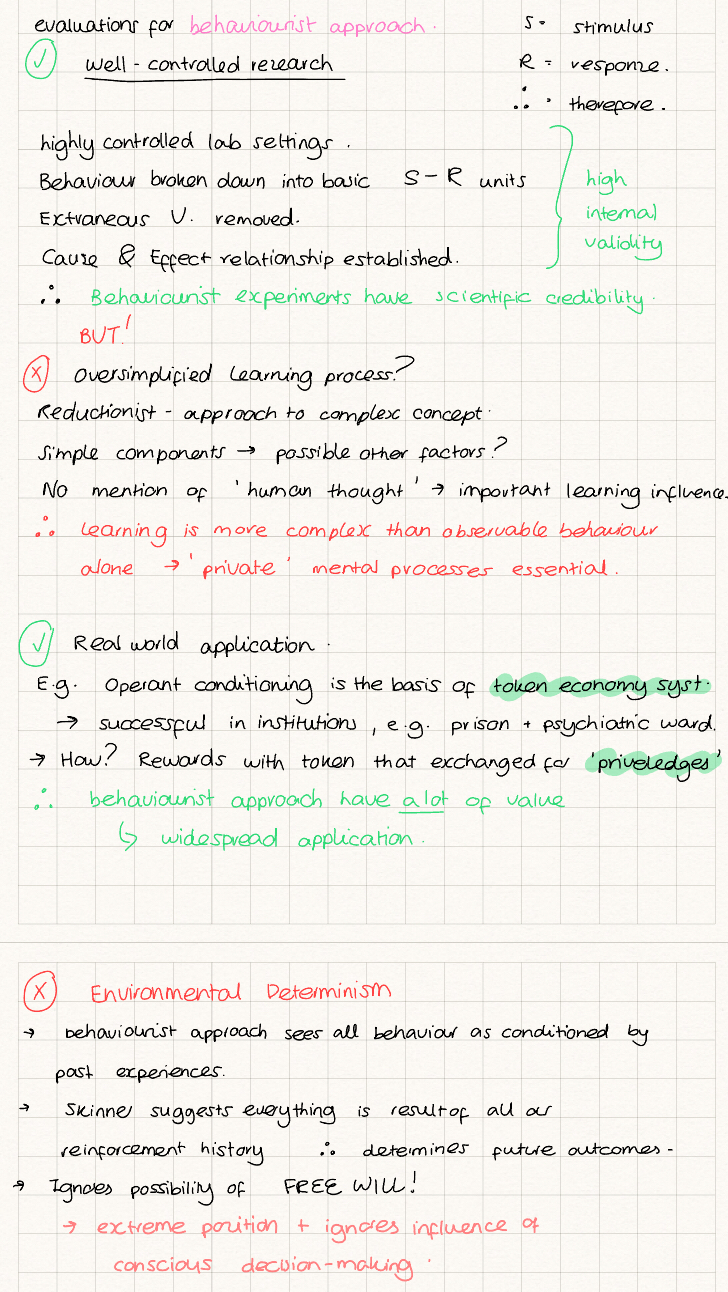 evaluations for behaviourist approach.
S = stimulus
✓ Well-controlled research
R = response.
∴ = therefore.
highly controlled lab settings.
Behaviour broken down into basic S-R units
Extraneous V. removed.
Cause & Effect relationship established.
high
internal
validity
∴ Behaviourist experiments have scientific credibility.
BUT!
X Oversimplified learning process?
Reductionist - approach to complex concept.
Simple components → possible other factors?
No mention of 'human thought' → important learning influence.
∴ learning is more complex than observable behaviour
alone → 'private' mental processes essential.
✓ Real world application.
E.g. Operant conditioning is the basis of token economy syst.
→ successful in institutions, e.g. prison + psychiatric ward.
→ How? Rewards with token that exchanged for 'priveledges'
∴ behaviourist approach have a lot of value
↳ widespread application.
X Environmental Determinism
→ behaviourist approach sees all behaviour as conditioned by
past experiences.
→ Skinner suggests everything is result of all our
reinforcement history ∴ determines future outcomes.
→ Ignores possibility of FREE WILL!
→ extreme position + ignores influence of
conscious decision-making.